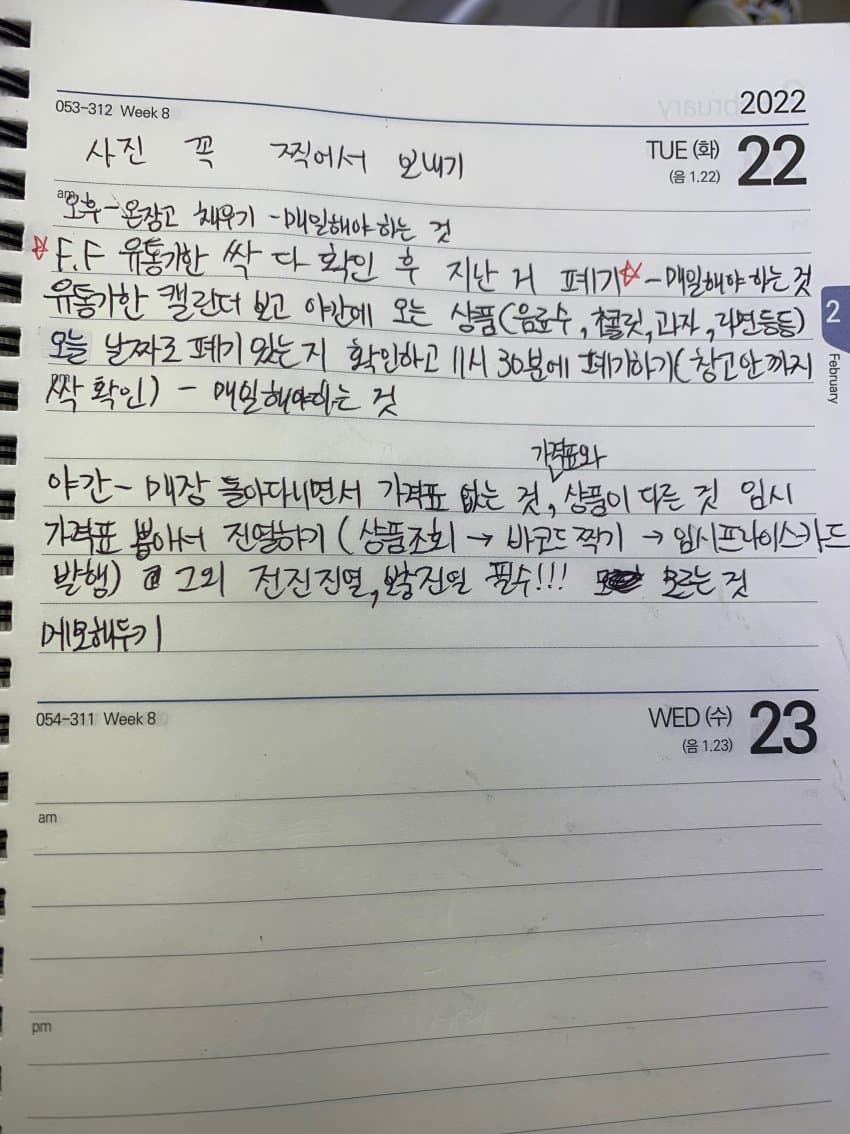 2022
053-312 Week 8
TUE (화) 22
(음 1.22)
사진 꼭 찍어서 보내기
am
오후 - 온장고 채우기 - 매일해야 하는 것
☆ F.F 유통기한 싹 다 확인 후 지난 거 폐기☆ - 매일해야 하는 것
유통기한 캘린더 보고 야간에 오는 상품(음료수, 초콜릿, 과자, 라면등등)
오늘 날짜로 폐기 있는지 확인하고 11시 30분에 폐기하기(창고안까지
싹 확인) - 매일해야하는 것
가격표와
야간 - 매장 돌아다니면서 가격표 없는 것, 상품이 다른 것 임시
가격표 뽑아서 진열하기 (상품조회 → 바코드 찍기 → 임시프라이스카드
발행) 그외 전진진열, 필수!!! 모르는 것
메모해두기
2
February
054-311 Week 8
WED (수) 23
(음 1.23)
am
pm